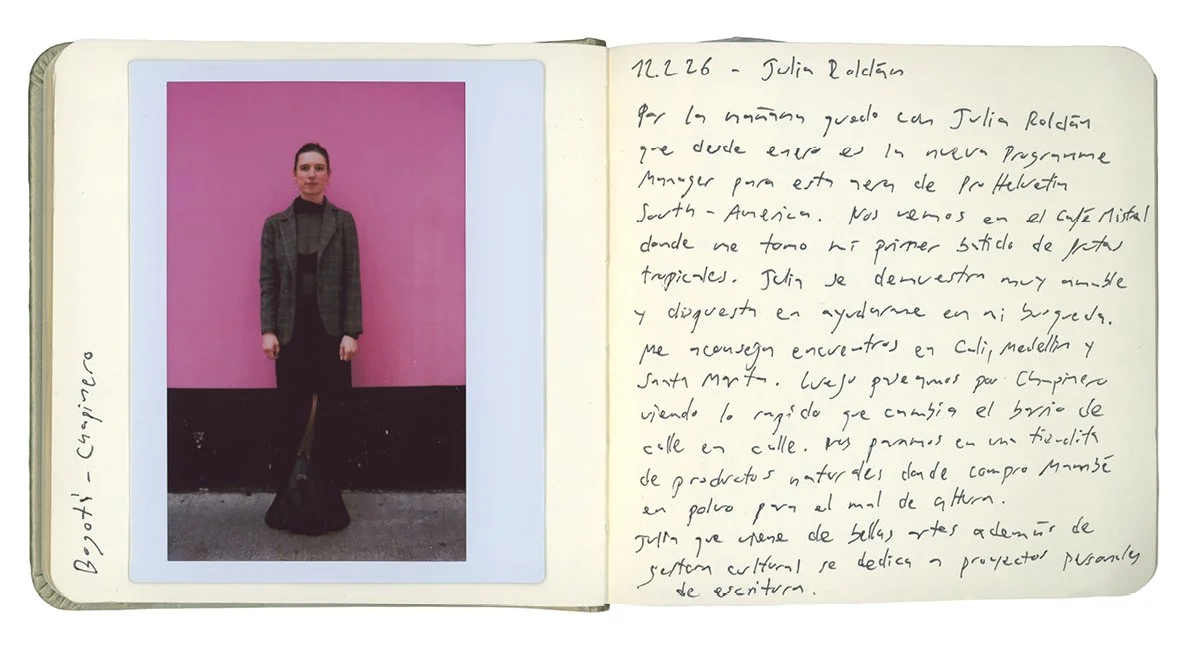 Bogotá - Chapinero
12.2.26 - Julia Roldán
Por la mañana quedo con Julia Roldán
que desde enero es la nueva Programme
Manager para esta area de ProHelvetia
South-America. Nos vemos en el Café Mistral
donde me tomo mi primer batido de frutas
tropicales. Julia se demuestra muy amable
y dispuesta en ayudarme en mi busqueda.
Me aconseja encuentros en Cali, Medellin y
Santa Marta. Luego paseamos por Chapinero
viendo lo rapido que cambia el barrio de
calle en calle. Nos paramos en una tiendita
de productos naturales donde compro Mambé
en polvo para el mal de altura.
Julia que viene de bellas artes además de
gestora cultural se dedica a proyectos personales
de escritura.